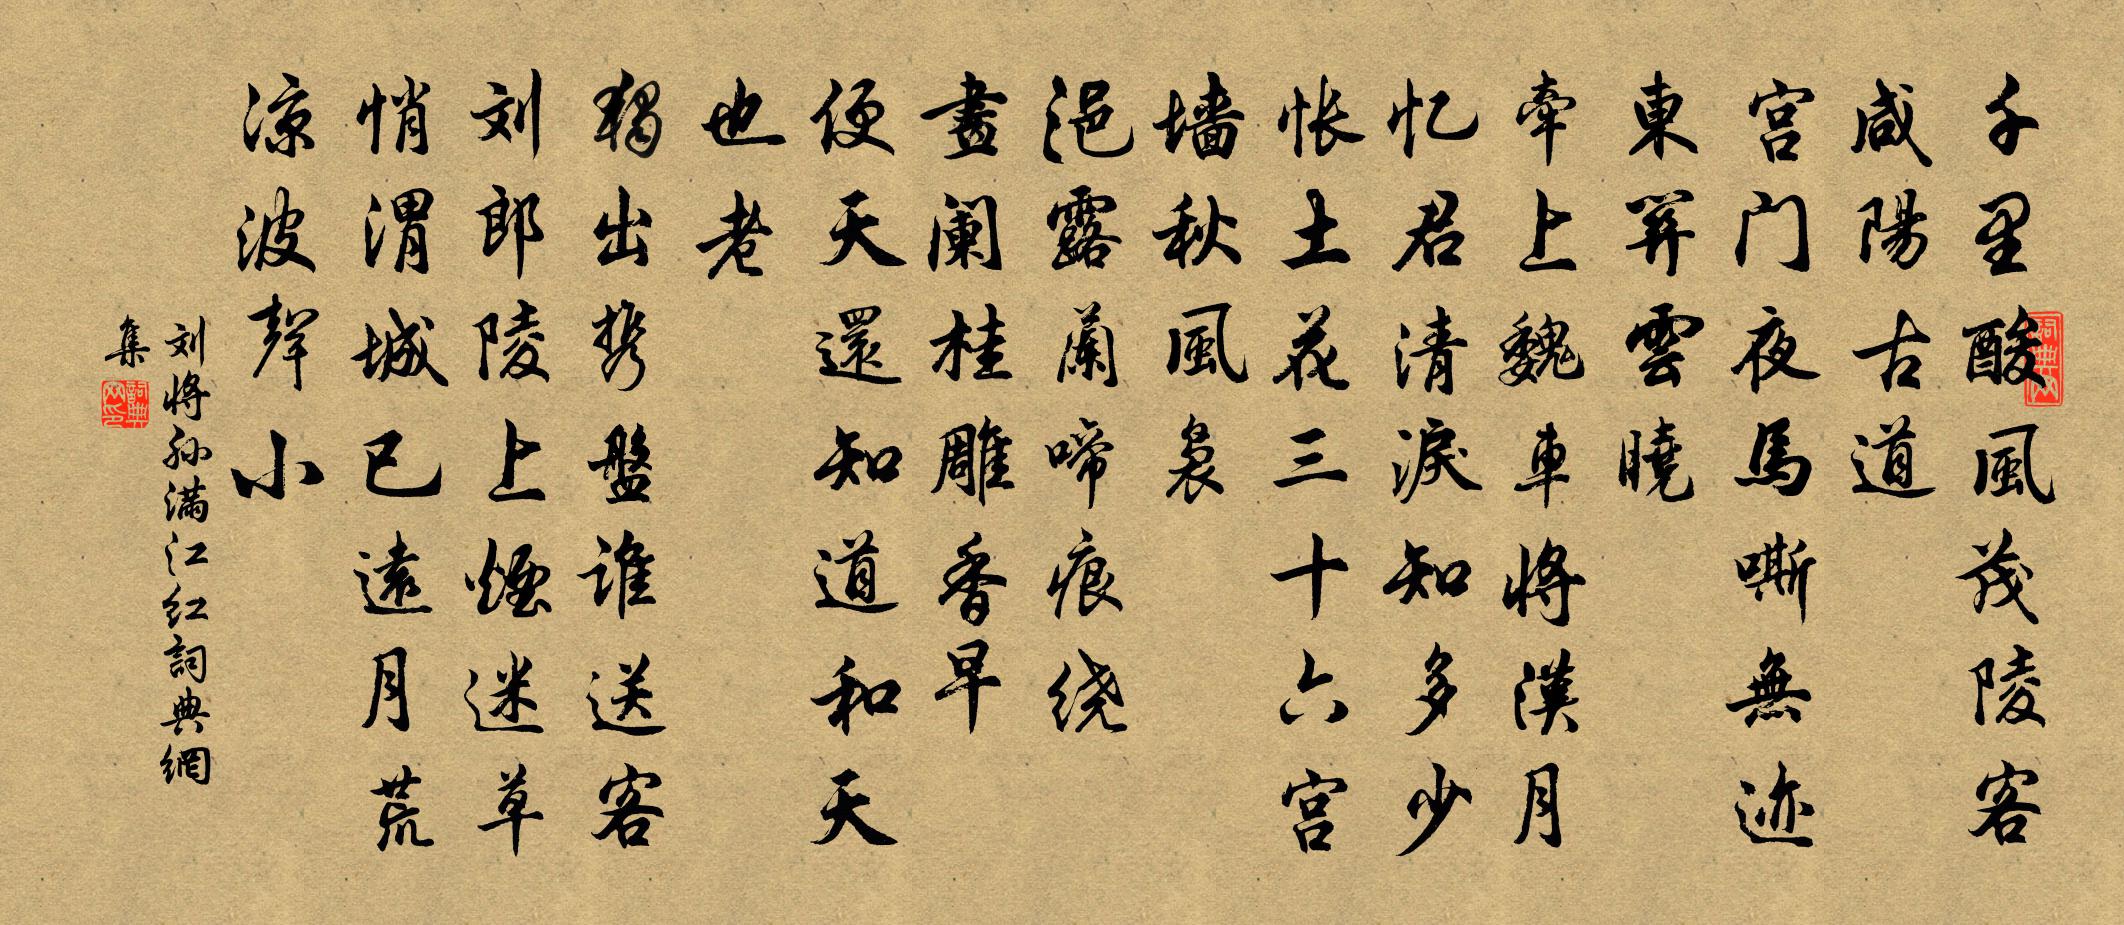 千里酸風茂陵客
咸陽古道
宫门夜馬嘶無迹
東界雲曉
牵上魏車將漢月
忆君清淚知多少
怅土花三十六宫
墙秋風袅
浥露蘭啼痕绕
畫阑桂雕香早
便天還知道和天
也老
獨出携盤谁送客
刘郎陵上煙迷草
悄渭城已遠月荒
凉波聲小
刘將孙满江红詞典網
集